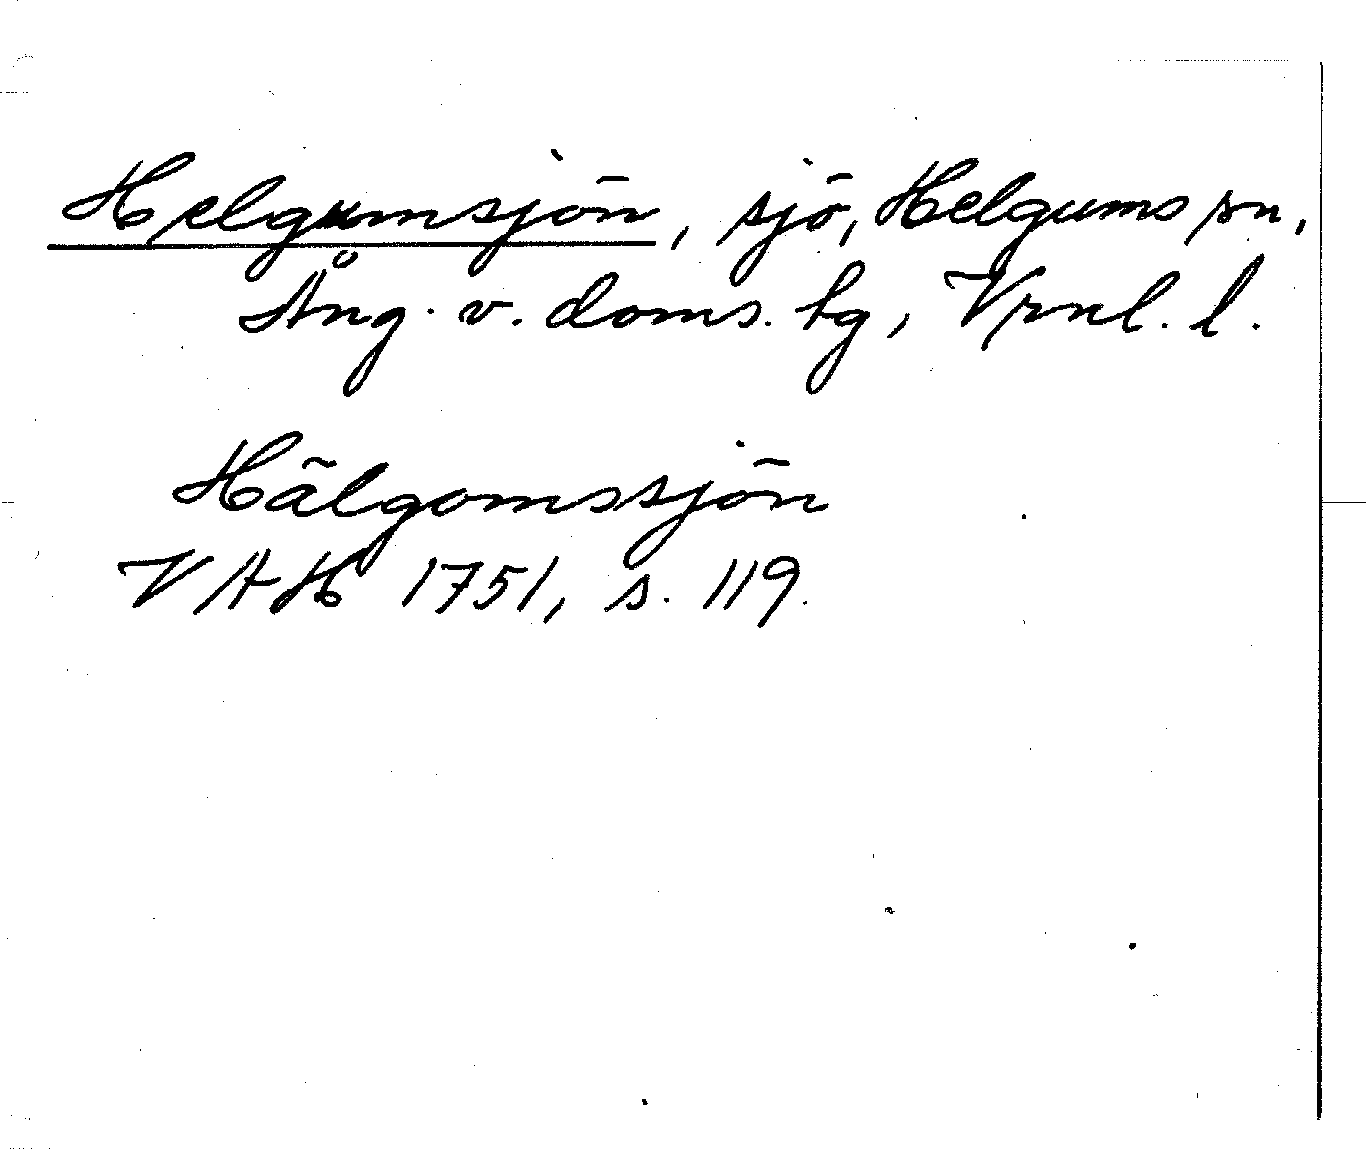 Helgumsjön, sjö, Helgums sn,
Ång. v. doms. tg, Vrnl. l.
Hälgomssjön
VAH 1751, s. 119.